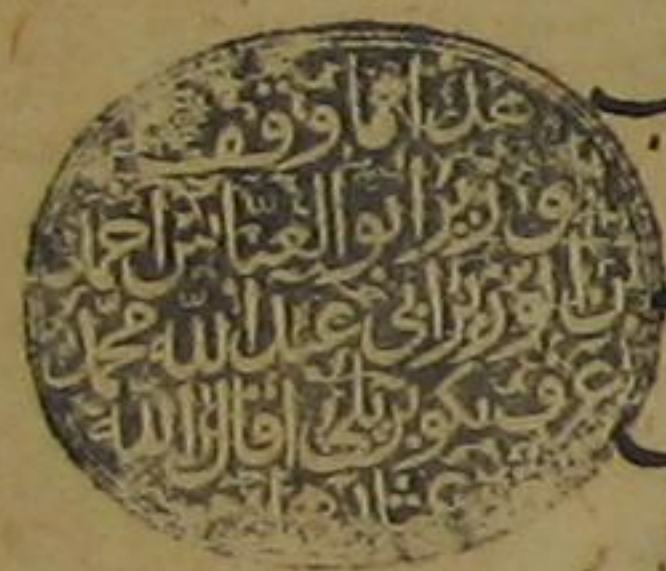 هذا مما وقف
وزير ابو العباس احمد
بن الوزير ابي عبد الله محمد
عرف بكوبريلي اقال الله
عثارهما